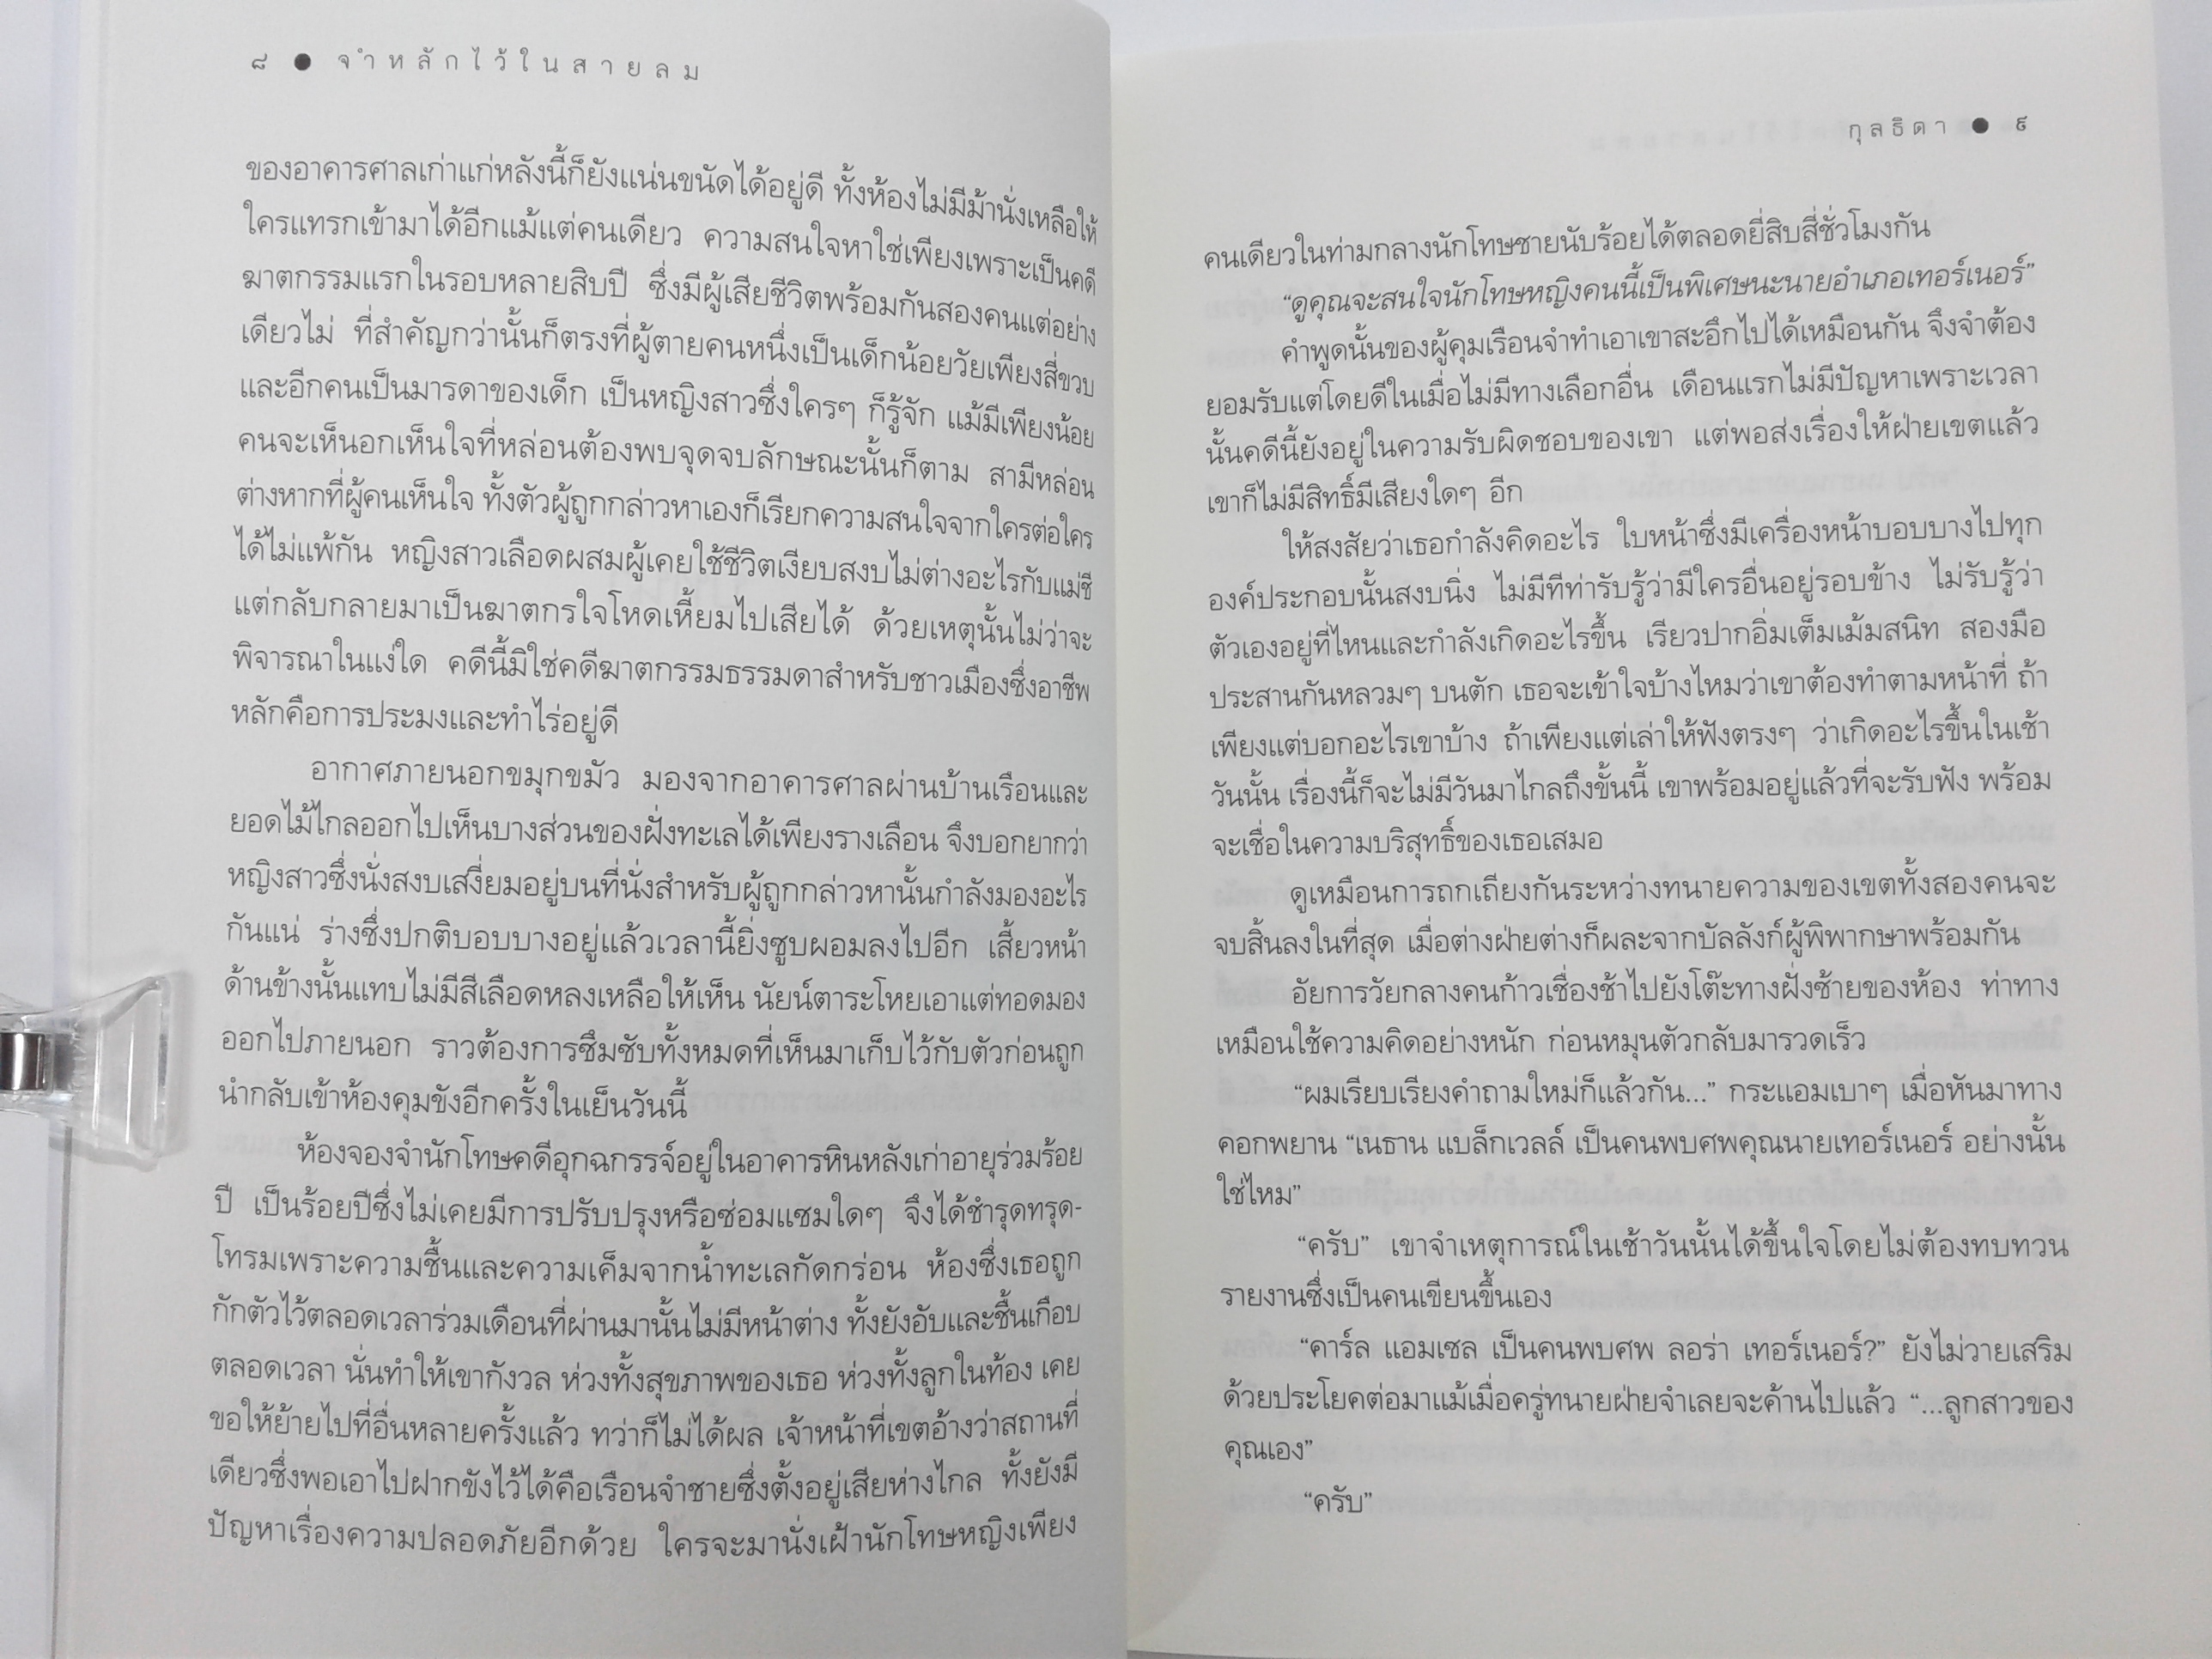 ๘ ● จำหลักไว้ในสายลม
ของอาคารศาลเก่าแก่หลังนี้ก็ยังแน่นขนัดได้อยู่ดี ทั้งห้องไม่มีม้านั่งเหลือให้
ใครแทรกเข้ามาได้อีกแม้แต่คนเดียว ความสนใจหาใช่เพียงเพราะเป็นคดี
ฆาตกรรมแรกในรอบหลายสิบปี ซึ่งมีผู้เสียชีวิตพร้อมกันสองคนแต่อย่าง
เดียวไม่ ที่สำคัญกว่านั้นก็ตรงที่ผู้ตายคนหนึ่งเป็นเด็กน้อยวัยเพียงสี่ขวบ
และอีกคนเป็นมารดาของเด็ก เป็นหญิงสาวซึ่งใครๆ ก็รู้จัก แม้มีเพียงน้อย
คนจะเห็นอกเห็นใจที่หล่อนต้องพบจุดจบลักษณะนั้นก็ตาม สามีหล่อน
ต่างหากที่ผู้คนเห็นใจ ทั้งตัวผู้ถูกกล่าวหาเองก็เรียกความสนใจจากใครต่อใคร
ได้ไม่แพ้กัน หญิงสาวเลือดผสมผู้เคยใช้ชีวิตเงียบสงบไม่ต่างอะไรกับแม่ชี
แต่กลับกลายมาเป็นฆาตกรใจโหดเหี้ยมไปเสียได้ ด้วยเหตุนั้นไม่ว่าจะ
พิจารณาในแง่ใด คดีนี้มิใช่คดีฆาตกรรมธรรมดาสำหรับชาวเมืองซึ่งอาชีพ
หลักคือการประมงและทำไร่อยู่ดี
อากาศภายนอกขมุกขมัว มองจากอาคารศาลผ่านบ้านเรือนและ
ยอดไม้ไกลออกไปเห็นบางส่วนของฝั่งทะเลได้เพียงรางเลือน จึงบอกยากว่า
หญิงสาวซึ่งนั่งสงบเสงี่ยมอยู่บนที่นั่งสำหรับผู้ถูกกล่าวหานั้นกำลังมองอะไร
กันแน่ ร่างซึ่งปกติบอบบางอยู่แล้วเวลานี้ยิ่งซูบผอมลงไปอีก เสี้ยวหน้า
ด้านข้างนั้นแทบไม่มีสีเลือดหลงเหลือให้เห็น นัยน์ตาระโหยเอาแต่ทอดมอง
ออกไปภายนอก ราวต้องการซึมซับทั้งหมดที่เห็นมาเก็บไว้กับตัวก่อนถูก
นำกลับเข้าห้องคุมขังอีกครั้งในเย็นวันนี้
ห้องจองจำนักโทษคดีอุกฉกรรจ์อยู่ในอาคารหินหลังเก่าอายุร่วมร้อย
ปี เป็นร้อยปีซึ่งไม่เคยมีการปรับปรุงหรือซ่อมแซมใดๆ จึงได้ชำรุดทรุด-
โทรมเพราะความชื้นและความเค็มจากน้ำทะเลกัดกร่อน ห้องซึ่งเธอถูก
กักตัวไว้ตลอดเวลาร่วมเดือนที่ผ่านมานั้นไม่มีหน้าต่าง ทั้งยังอับและชื้นเกือบ
ตลอดเวลา นั่นทำให้เขากังวล ห่วงทั้งสุขภาพของเธอ ห่วงทั้งลูกในท้อง เคย
ขอให้ย้ายไปที่อื่นหลายครั้งแล้ว ทว่าก็ไม่ได้ผล เจ้าหน้าที่เขตอ้างว่าสถานที่
เดียวซึ่งพอเอาไปฝากขังไว้ได้คือเรือนจำชายซึ่งตั้งอยู่เสียห่างไกล ทั้งยังมี
ปัญหาเรื่องความปลอดภัยอีกด้วย ใครจะมานั่งเฝ้านักโทษหญิงเพียง
กุลธิดา ● ๙
คนเดียวในท่ามกลางนักโทษชายนับร้อยได้ตลอดยี่สิบสี่ชั่วโมงกัน
“ดูคุณจะสนใจนักโทษหญิงคนนี้เป็นพิเศษนะนายอำเภอเทอร์เนอร์”
คำพูดนั้นของผู้คุมเรือนจำทำเอาเขาสะอึกไปได้เหมือนกัน จึงจำต้อง
ยอมรับแต่โดยดีในเมื่อไม่มีทางเลือกอื่น เดือนแรกไม่มีปัญหาเพราะเวลา
นั้นคดีนี้ยังอยู่ในความรับผิดชอบของเขา แต่พอส่งเรื่องให้ฝ่ายเขตแล้ว
เขาก็ไม่มีสิทธิ์มีเสียงใดๆ อีก
ให้สงสัยว่าเธอกำลังคิดอะไร ใบหน้าซึ่งมีเครื่องหน้าบอบบางไปทุก
องค์ประกอบนั้นสงบนิ่ง ไม่มีทีท่ารับรู้ว่ามีใครอื่นอยู่รอบข้าง ไม่รับรู้ว่า
ตัวเองอยู่ที่ไหนและกำลังเกิดอะไรขึ้น เรียวปากอิ่มเต็มเม้มสนิท สองมือ
ประสานกันหลวมๆ บนตัก เธอจะเข้าใจบ้างไหมว่าเขาต้องทำตามหน้าที่ ถ้า
เพียงแต่บอกอะไรเขาบ้าง ถ้าเพียงแต่เล่าให้ฟังตรงๆ ว่าเกิดอะไรขึ้นในเช้า
วันนั้น เรื่องนี้ก็จะไม่มีวันมาไกลถึงขั้นนี้ เขาพร้อมอยู่แล้วที่จะรับฟัง พร้อม
จะเชื่อในความบริสุทธิ์ของเธอเสมอ
ดูเหมือนการถกเถียงกันระหว่างทนายความของเขตทั้งสองคนจะ
จบสิ้นลงในที่สุด เมื่อต่างฝ่ายต่างก็ผละจากบัลลังก์ผู้พิพากษาพร้อมกัน
อัยการวัยกลางคนก้าวเชื่องช้าไปยังโต๊ะทางฝั่งซ้ายของห้อง ท่าทาง
เหมือนใช้ความคิดอย่างหนัก ก่อนหมุนตัวกลับมารวดเร็ว
“ผมเรียบเรียงคำถามใหม่ก็แล้วกัน...” กระแอมเบาๆ เมื่อหันมาทาง
คอกพยาน “เนธาน แบล็กเวลล์ เป็นคนพบศพคุณนายเทอร์เนอร์ อย่างนั้น
ใช่ไหม”
“ครับ” เขาจำเหตุการณ์ในเช้าวันนั้นได้ขึ้นใจโดยไม่ต้องทบทวน
รายงานซึ่งเป็นคนเขียนขึ้นเอง
“คาร์ล แอมเซล เป็นคนพบศพ ลอร่า เทอร์เนอร์?” ยังไม่วายเสริม
ด้วยประโยคต่อมาแม้เมื่อครู่ทนายฝ่ายจำเลยจะค้านไปแล้ว “...ลูกสาวของ
คุณเอง”
“ครับ”